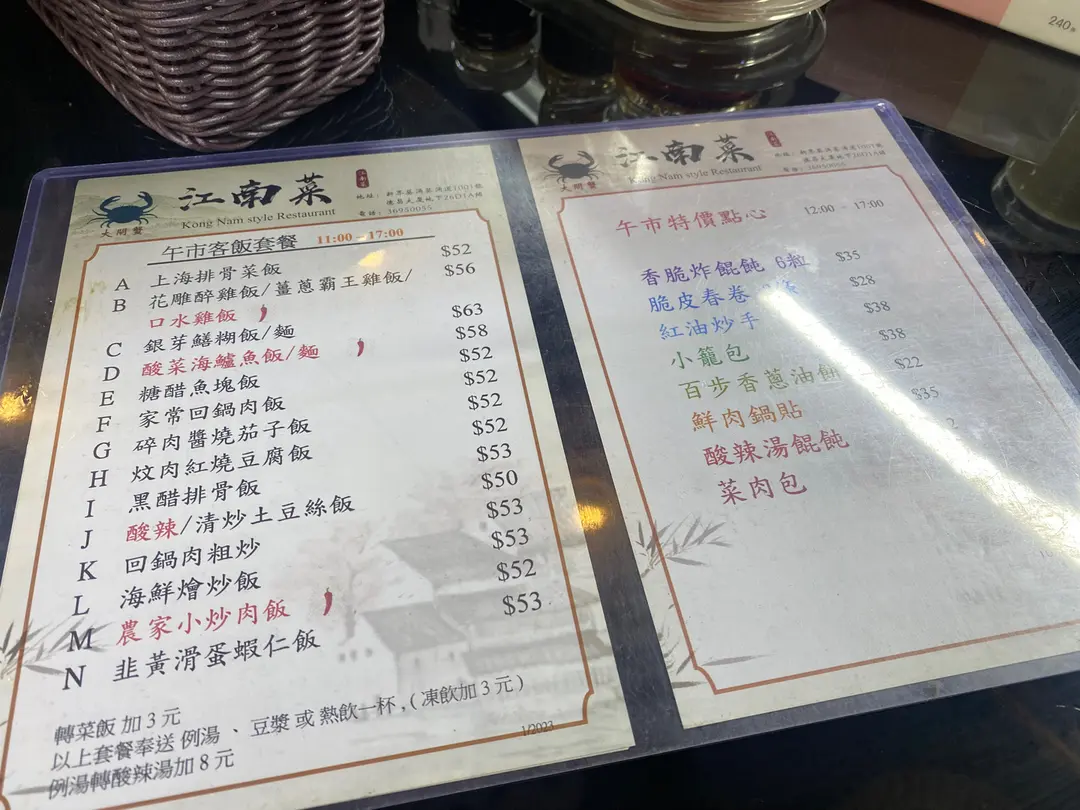 240
大閘蟹
江南菜
Kong Nam style Restaurant
地址：新界葵涌葵涌道1001號
德昌大廈地下26D1A鋪
電話：36950055
午市客飯套餐 11:00 - 17:00
A 上海排骨菜飯 $52
B 花雕醉雞飯/薑蔥霸王雞飯/ $56
口水雞飯
C 銀芽鱔糊飯/麵 $63
D 酸菜海鱸魚飯/麵 $58
E 糖醋魚塊飯 $52
F 家常回鍋肉飯 $52
G 碎肉醬燒茄子飯 $52
H 炆肉紅燒豆腐飯 $52
I 黑醋排骨飯 $53
J 酸辣/清炒土豆絲飯 $50
K 回鍋肉粗炒 $53
L 海鮮燴炒飯 $53
M 農家小炒肉飯 $52
N 韭黃滑蛋蝦仁飯 $53
轉菜飯 加 3 元
以上套餐奉送 例湯 、豆漿 或 熱飲一杯 , ( 凍飲加 3 元 )
例湯轉酸辣湯加 8 元
1/2023
大閘蟹
江南菜
Kong Nam style Restaurant
地址：新界葵涌葵涌道1001號
德昌大廈地下26D1A鋪
電話：36950055
午市特價點心 12:00 - 17:00
香脆炸餛飩 6粒 $35
脆皮春卷 $28
紅油炒手 $38
小籠包 $38
百步香蔥油餅 $22
鮮肉鍋貼 $35
酸辣湯餛飩
菜肉包